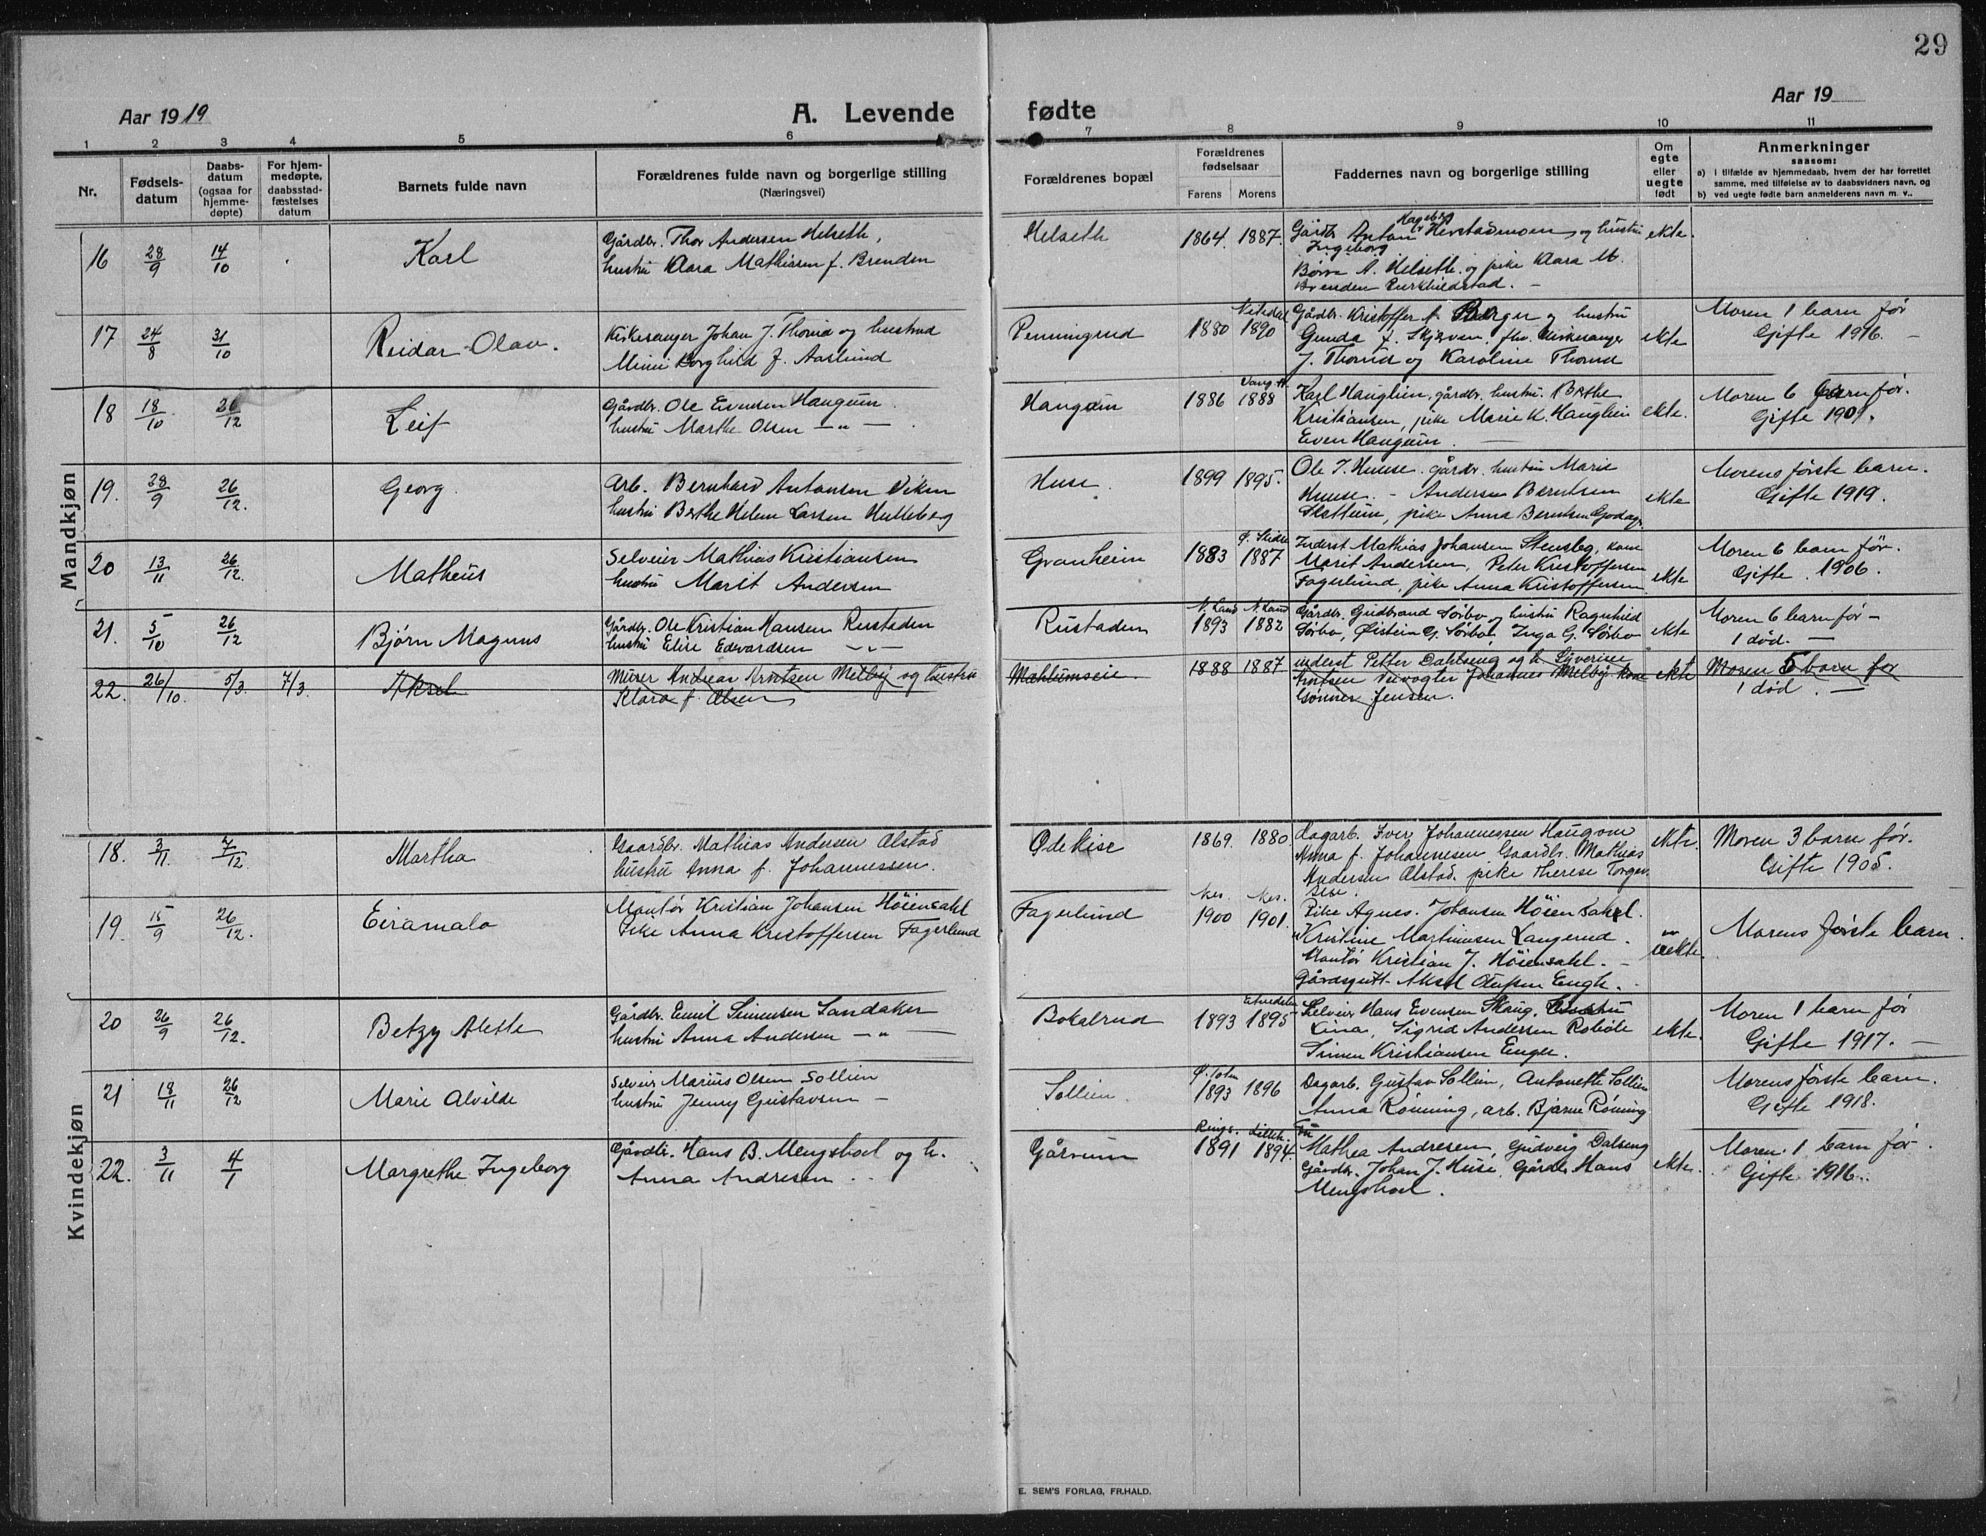 29
Aar 1919
A. Levende fødte
Aar 19
1 2 3 4 5 6 7 8 9 10 11
Nr.
Fødsels-
datum
Daabs-
datum
(ogsaa for
hjemme-
døpte)
For hjem-
medøpte,
daabsstad-
fæstelses
datum
Barnets fulde navn
Forældrenes fulde navn og borgerlige stilling
(Næringsvei)
Forældrenes bopæl
Forældrenes
fødselsaar
Farens Morens
Faddernes navn og borgerlige stilling
Om
egte
eller
uegte
født
Anmerkninger
saasom:
a) i tilfælde av hjemmedaab, hvem der har forrettet
samme, med tilføielse av to daabsvidners navn, og
b) ved uegte fødte barn anmelderens navn m. v..
Mandkjøn
16 28/9 14/10 Karl
Gårdbr. Thor Andersen Helseth,
hustru Klara Mathisen f. Brenden
Helseth 1864. 1887.
Gårdbr Anton Hagebg Herstadmoen og hustru
Ingeborg
A. Helseth. og pike Klara M.
Brenden
ekte.
17 24/8 31/10 Reidar Olav.
Kirkesanger Johan J. Thorud og hustrud
Mimi Borghild f. Aaslund
Penningrud 1880 1890
Gårdbr. Kristoffer A. Berger og hustru
Gunda f. Skjerven. fhv. Kirkesanger
J. Thorud og Karoline Thorud
ekte
Moren 1 barn før
Gifte 1916. –
18 18/10. 26/12 Leif
Gårdbr. Ole Evensen Haugum.
hustru Marthe Olsen – „ –
Haugum 1886 1888
Karl Hauglien, gårdbr. hustru. Berthe
Kristiansen, pike Marie K. Hauglien
Even Haugum. –
ekte.
Moren 6 barn før.
Gifte 1909.
19. 28/9 26/12. Georg.
Arb. Bernhard Antonsen Viken
hustru Berthe Helene Larsen Hulleberg
Huse. 1899 1895.
Ole J. Huuse. gårdbr. hustru Marie
Huuse. – Andersen Berntsen
pike Anna Berntsen
ekte
Morens første barn.
Gifte 1919.
20 13/11 26/12. Matheus
Selveier Mathias Kristiansen
hustru Marit Andersen
Granheim 1883 Ø. Slidre 1887
Inderst Mathias Johansen Stensby, kone
Marit Andersen, Peter Kristoffersen
Fagerlund, pike Anna Kristoffersen
ekte
Moren 6 barn før.
Gifte. 1906.
21. 5/10 26/12 Bjørn Magnus
Gårdbr. Ole Kristian Hansen Rustaden
hustru Elise Edvardsen „
Rustaden N. Land 1893 N. Land 1882
Gårdbr. Gudbrand Sørbo og hustru Ragnhild
Sørbo, Øistein G. Sørbo, Inga G. Sørbo
ekte
Moren 6 barn før –
1 død. –
22. 26/10. 5/3. 7/3. Aksel
Murer Andreas Arntsen Melby og hustru
Klara f. Olsen
Mæhlumseie. 1888 1887
inderst Petter Dahlseng og h. Syverine
Arntsen Veivogter Johannes Melby kone
Gønner Jensen.
ekte
Moren 5 barn før
1 død. –
Kvindekjøn
18. 3/11. 7/12 Martha
Gaardbr. Mathias Andersen Alstad
hustru Anna f. Johannessen.
Øde Kise 1869. 1880.
Dagarb. Iver Johannessen Haugom
Anna f. Johannesen Gaardbr. Mathias
Andersen Alstad. pike Therese
ekte.
Moren 3 barn før.
Gifte 1905.
19. 15/9 26/12. Eiramalo
Montør Kristian Johansen Høiensahl
Pike Anna Kristoffersen Fagerlund
Fagerlund Nes. 1900 Nes. 1901.
Pike Agnes. Johansen Høiensahl.
„ Kristine Martinusen Langerud.
Montør Kristian J. Høiensahl. –
Gårdsgutt Aksel Olufsen Engh.
uekte.
Morens første barn.
20 26/9 26/12. Betzy Alette
Gårdbr. Emil Simensen Sandaker
hustru Anna Andersen – „ –
Bokalrud 1893 1895
Selveier Hans Evensen Skaug, hustru
Lina, Sigrid Andersen Robøle
Simen Kristiansen Enger.
ekte.
Moren 1 barn før
Gifte 1917. –
21 18/11 26/12 Marie Alvilde
Selveier Marius Olsen Sollien
hustru Jenny Gustavsen –
Sollien. Ø. Toten 1893 1896
Dagarb. Gustav Sollien, Antonette Sollien
Anna Rønning, arb. Bjarne Rønning
Morens første barn.
Gifte 1918.
22. 3/11 4/1 Margrethe Ingeborg
Gårdbr. Hans B. Mengshoel og h.
Anna Andresen. .
Gårvum Rings. 1891 Lilleh. 1894.
Mathea Andresen, Gudveig Dalseng
Gårdbr. Johan J. Huse, Gårdbr. Hans
Mengshoel.
ekte.
Moren 1 barn før
Gifte 1916.
E. SEM'S FORLAG, FR.HALD.